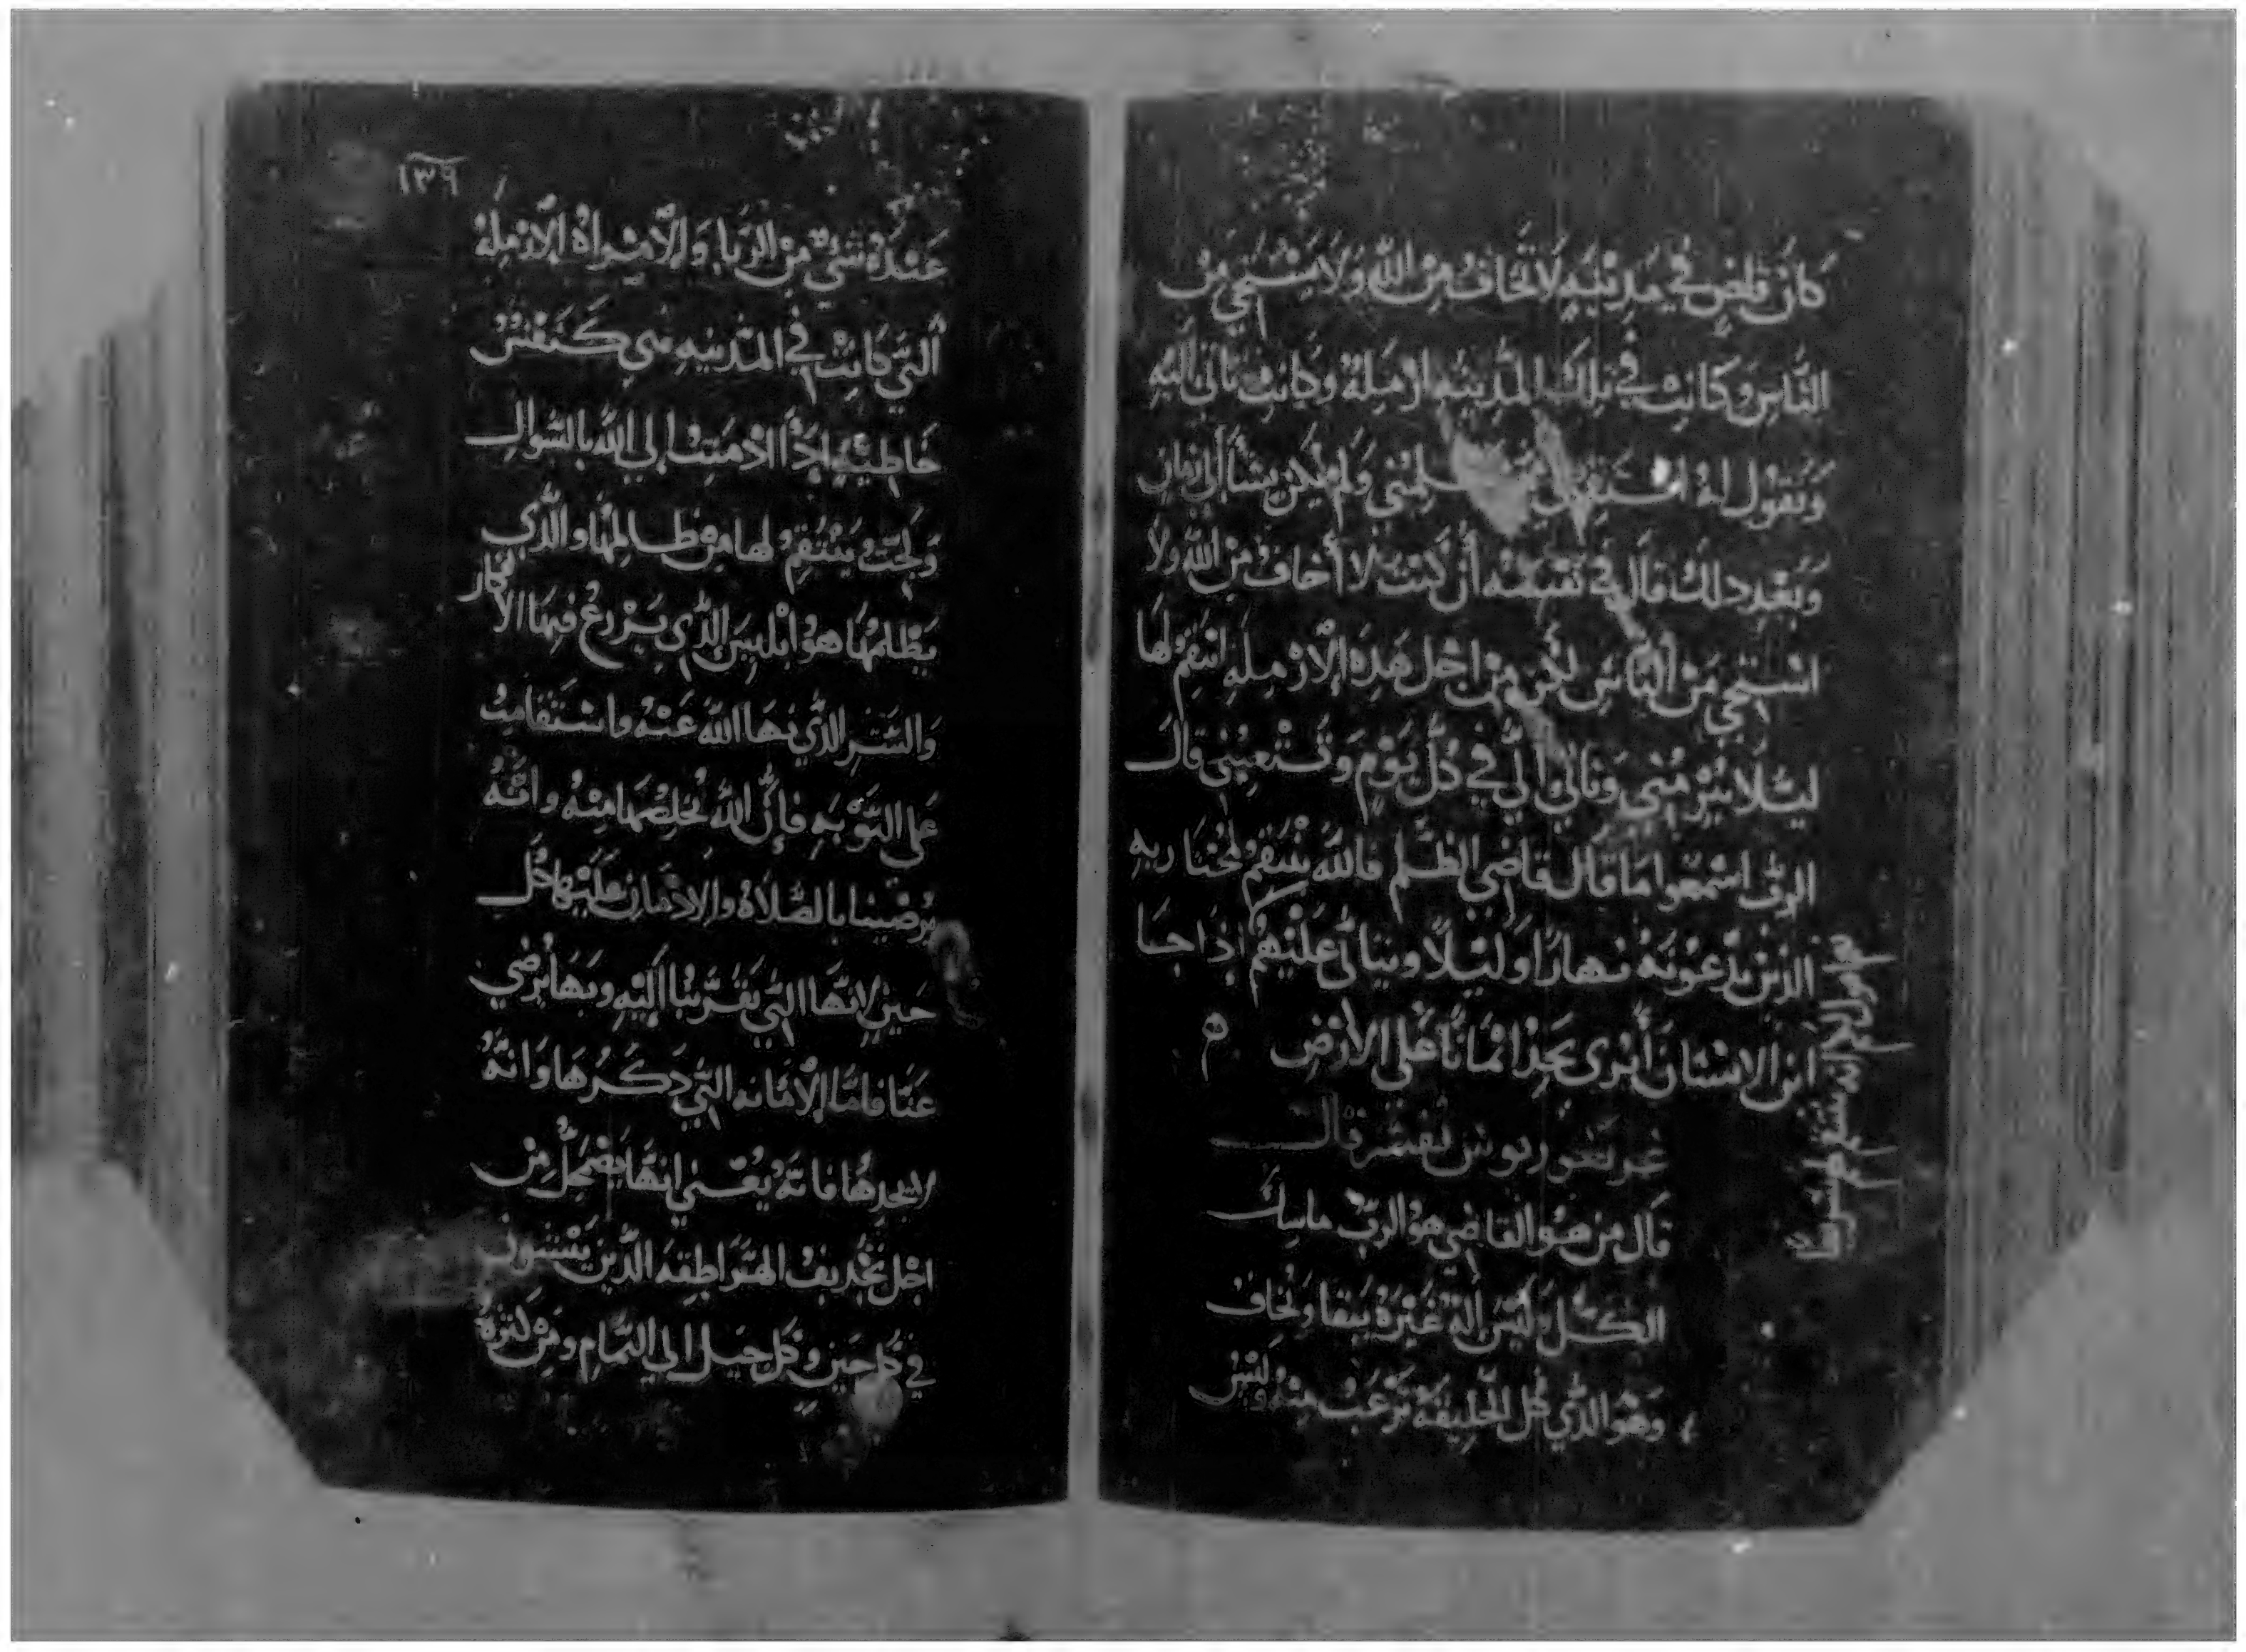 كان قاض في مدينه لا تخاف من الله ولا يستحي من
الناس وكانت في تلك المدينه ارمله وكانت تاتي اليه
وتقول له ولم يكن يشا الي زمان
وبعد دلك قال في نفسه أن كنت لا أخاف من الله ولا
استحي من الناس لكن من اجل هذه الارمله انتقم لها
ليلا تبرمني وتاتي الي في كل يوم وتتعبني قال
الرب اسمعوا ما قال قاضي الظلم فالله ينتقم لمختاريه
الذين يدعونه نهارا وليلا ويتاني عليهم اذا جا
ابن الانسان أترى يجد ايمانا على الارض ه
غريغوريوس يفسر قال
قال من هو القاضي هو الرب ماسك
الكل وليس اله غيره يبقا وتخاف
وهو الذي كل الخليقه ترعب منه وليس
١٣٩
عنده شي من الريا والامراه الارمله
التي كانت في المدينه هي كنفس
خاطيه اذا ادمنت الي الله بالسوال
ولجت ينتقم لها من ظالمها والذي
يظلمها هو ابليس الذي يزرع فيها الافكار
والشر الذي نها الله عنه واستقامت
على التوبه فإن الله يخلصها منه وانه
يوصينا بالصلاه والادمان عليها كل
حين لانها التي تقربنا اليه وبها يرضي
عنا فاما الامانه التي دكرها وانه
لا يجدها فانه يعني انها تضمحل من
اجل تجديف الهراطقه الذين
في كل حين وكل جيل الي التمام ومن كثرة